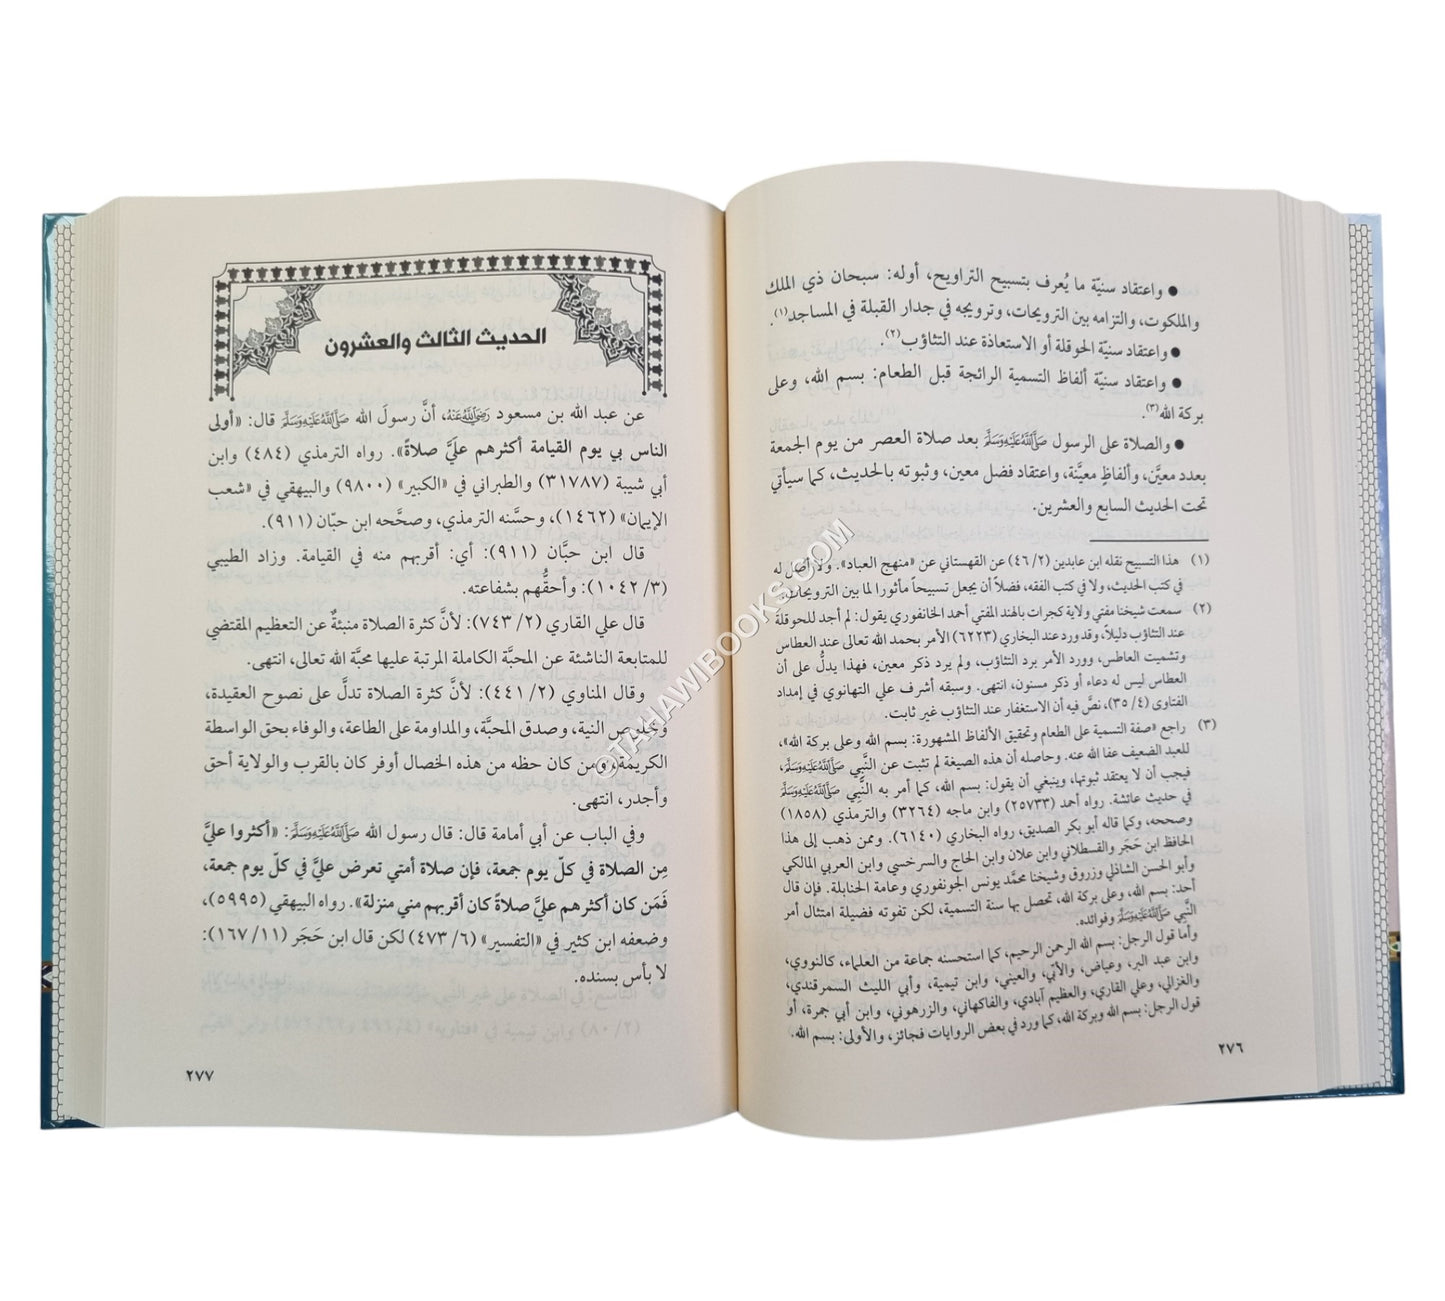 ● واعتقاد سنيّة ما يُعرف بتسبيح التراويح، أوله: سبحان ذي الملك
والملكوت، والتزامه بين الترويحات، وترويجه في جدار القبلة في المساجد(١).
● واعتقاد سنيّة الحوقلة أو الاستعاذة عند التثاؤب(٢).
● واعتقاد سنيّة ألفاظ التسمية الرائجة قبل الطعام: بسم الله، وعلى
بركة الله(٣).
● والصلاة على الرسول ﷺ بعد صلاة العصر من يوم الجمعة
بعدد معيَّن، وألفاظٍ معيَّنة، واعتقاد فضل معين، وثبوته بالحديث، كما سيأتي
تحت الحديث السابع والعشرين.
(١) هذا التسبيح نقله ابن عابدين (٢/ ٤٦) عن القهستاني عن «منهج العباد». ولا أصل له
في كتب الحديث، ولا في كتب الفقه، فضلاً أن يجعل تسبيحاً مأثورا لما بين الترويحات.
(٢) سمعت شيخنا مفتي ولاية كجرات بالهند المفتي أحمد الخانفوري يقول: لم أجد للحوقلة
عند التثاؤب دليلاً، وقد ورد عند البخاري (٦٢٢٣) الأمر بحمد الله تعالى عند العطاس
وتشميت العاطس، وورد الأمر برد التثاؤب، ولم يرد ذكر معين، فهذا يدلُّ على أن
العطاس ليس له دعاء أو ذكر مسنون، انتهى. وسبقه أشرف علي التهانوي في إمداد
الفتاوى (٤/ ٣٥)، نصَّ فيه أن الاستغفار عند التثاؤب غير ثابت.
(٣) راجع «صفة التسمية على الطعام وتحقيق الألفاظ المشهورة: بسم الله وعلى بركة الله»،
للعبد الضعيف عفا الله عنه. وحاصله أن هذه الصيغة لم تثبت عن النَّبي ﷺ،
فيجب أن لا يعتقد ثبوتها، وينبغي أن يقول: بسم الله، كما أمر به النَّبي ﷺ
في حديث عائشة. رواه أحمد (٢٥٧٣٣) وابن ماجه (٣٢٦٤) والترمذي (١٨٥٨)
وصححه، وكما قاله أبو بكر الصديق، رواه البخاري (٦١٤٠). وممن ذهب إلى هذا
الحافظ ابن حَجَر والقسطلاني وابن علان وابن الحاج والسرخسي وابن العربي المالكي
وأبو الحسن الشاذلي وزروق وشيخنا محمَّد يونس الجونفوري وعامة الحنابلة. فإن قال
أحد: بسم الله، وعلى بركة الله، تحصل بها سنة التسمية، لكن تفوته فضيلة امتثال أمر
النَّبي ﷺ وفوائده.
وأما قول الرجل: بسم الله الرحمن الرحيم، كما استحسنه جماعة من العلماء، كالنووي،
وابن عبد البر، وعياض، والأُبّي، والعيني، وابن تيمية، وأبي الليث السمرقندي،
والغزالي، وعلي القاري، والعظيم آبادي، والفاكهاني، والزرهوني، وابن أبي جمرة، أو
قول الرجل: بسم الله وبركة الله، كما ورد في بعض الروايات فجائز، والأولى: بسم الله.
٢٧٦
الحديث الثالث والعشرون
عن عبد الله بن مسعود رَضِيَاللَّهُعَنْهُ، أنَّ رسولَ الله ﷺ قال: «أولى
الناس بي يوم القيامة أكثرهم علَيَّ صلاةً». رواه الترمذي (٤٨٤) وابن
أبي شيبة (٣١٧٨٧) والطبراني في «الكبير» (٩٨٠٠) والبيهقي في «شعب
الإيمان» (١٤٦٢)، وحسَّنه الترمذي، وصحَّحه ابن حبّان (٩١١).
قال ابن حبَّان (٩١١): أي: أقربهم منه في القيامة. وزاد الطيبي
(٣/ ١٠٤٢): وأحقُّهم بشفاعته.
قال علي القاري (٢/ ٧٤٣): لأنَّ كثرة الصلاة منبئةٌ عن التعظيم المقتضي
للمتابعة الناشئة عن المحبَّة الكاملة المرتبة عليها محبَّة الله تعالى، انتهى.
وقال المناوي (٢/ ٤٤١): لأنَّ كثرة الصلاة تدلَّ على نصوح العقيدة،
وخلوص النية، وصدق المحبَّة، والمداومة على الطاعة، والوفاء بحق الواسطة
الكريمة، ومن كان حظه من هذه الخصال أوفر كان بالقرب والولاية أحق
وأجدر، انتهى.
وفي الباب عن أبي أمامة قال: قال رسول الله ﷺ: «أكثروا عليَّ
مِن الصلاة في كلّ يوم جمعة، فإن صلاة أمتي تعرض عليَّ في كلّ يوم جمعة،
فَمَن كان أكثرهم عليَّ صلاةً كان أقربهم مني منزلة». رواه البيهقي (٥٩٩٥)،
وضعفه ابن كثير في «التفسير» (٦/ ٤٧٣) لكن قال ابن حَجَر (١١/ ١٦٧):
لا بأس بسنده.
٢٧٧
©TAHAWIBOOKS.COM